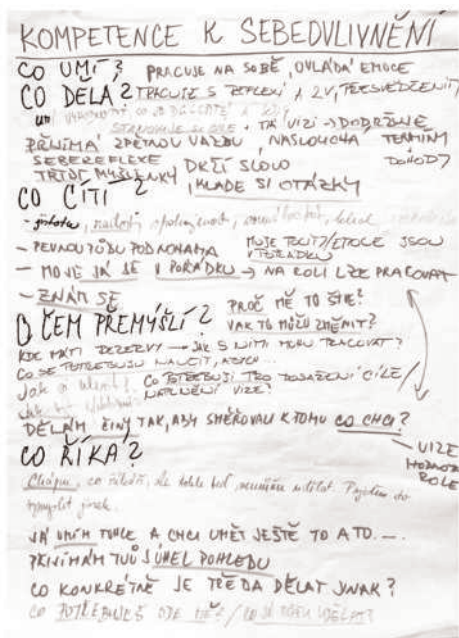 KOMPETENCE K SEBEOVLIVNĚNÍ
CO UMÍ? PRACUJE NA SOBĚ, OVLÁDÁ EMOCE
CO DĚLÁ? PRACUJE S REFLEXÍ A ZV, PŘESVĚDČENÍ
umí co je DŮLEŽITÉ A
STANOVUJE SI CÍLE + MÁ VIZI → DODRŽUJE
PŘIJÍMÁ ZPĚTNOU VAZBU, NASLOUCHÁ TERMÍNY
SEBEREFLEXE DOHODY
TŘÍDÍ MYŠLENKY DRŽÍ SLOVO
CO CÍTÍ? KLADE SI OTÁZKY
- jistotu, radost, spokojenost,
- PEVNOU PŮDU POD NOHAMA MOJE POCITY/EMOCE JSOU
V POŘÁDKU
- MOJE JÁ JE V POŘÁDKU → NA ROLI LZE PRACOVAT
- ZNÁM SE
O ČEM PŘEMÝŠLÍ? PROČ MĚ TO ŠTVE?
JAK TO MŮŽU ZMĚNIT?
KDE MÁM REZERVY → JAK S NIMI MOHU PRACOVAT?
CO SE POTŘEBUJU NAUČIT, ABYCH...
CO POTŘEBUJI PRO DOSAŽENÍ CÍLE/
NAPLNĚNÍ VIZE?
DĚLÁM ČINY TAK, ABY SMĚŘOVALI K TOMU CO CHCI?
VIZE
HODNOTA
ROLE
CO ŘÍKÁ?
Chápu, co říkáš, ale tohle teď neumím udělat. Pojďme to
vymyslet jinak.
JÁ UMÍM TOHLE A CHCI UMĚT JEŠTĚ TO A TO....
PŘIJÍMÁM TVŮJ ÚHEL POHLEDU
CO KONKRÉTNĚ JE TŘEBA DĚLAT JINAK?
CO POTŘEBUJEŠ ODE MĚ / CO JÁ MOHU UDĚLAT?